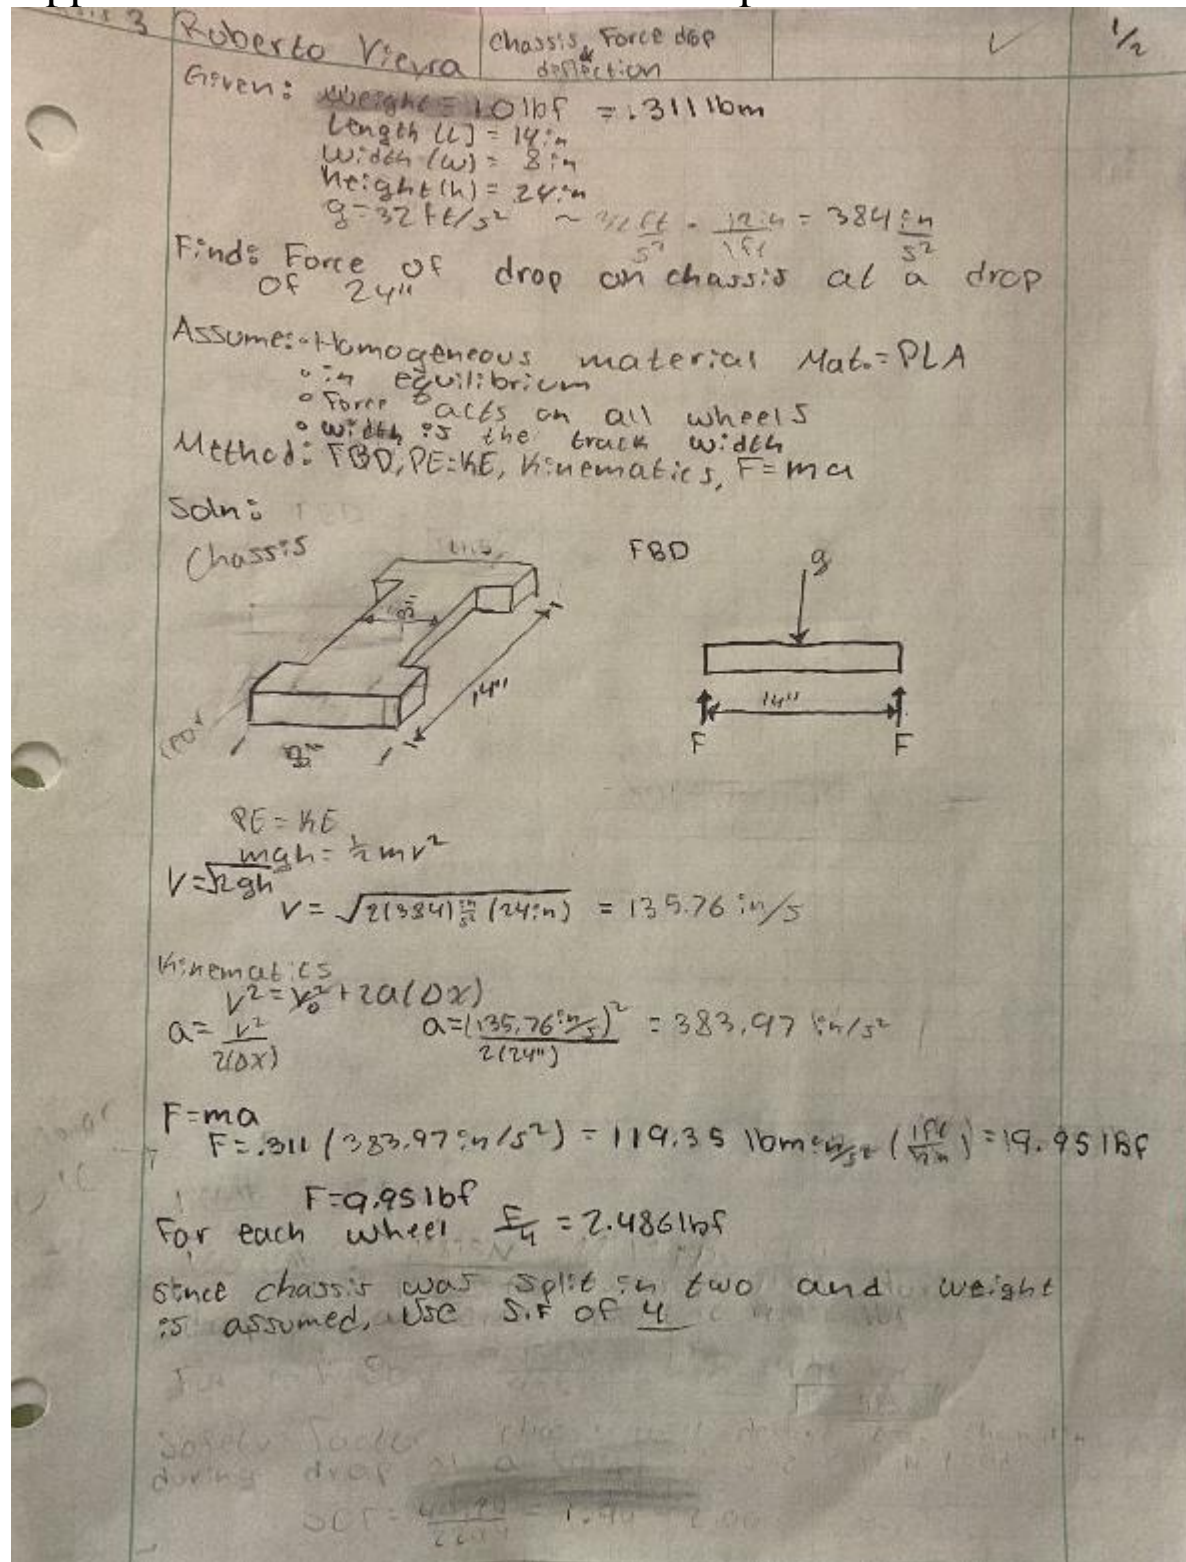 3 Roberto Vieyra
Chassis Force drop
& deflection
1/2
Given: Weight = 10 lbf = .311 lbm
Length (L) = 14in
Width (w) = 8in
height(h) = 24in
g=32 ft/s² ~ 32 ft/s² · 12in/1ft = 384 in/s²
Find: Force of drop on chassis at a drop
of 24"
Assume: • Homogeneous material Mat.=PLA
• in equilibrium
• Force acts on all wheels
• width is the track width
Method: FBD, PE=KE, Kinematics, F=ma
Soln:
Chassis
FBD
g
14"
14"
F F
8"
PE = KE
mgh = ½mv²
V=√2gh
V = √2(384)in/s² (24in) = 135.76 in/s
Kinematics
V² = V₀² + 2a(Δx)
a = V²/2(Δx) a=(135.76 in/s)²/2(24") = 383.97 in/s²
F=ma
F=.311 (383.97 in/s²) = 119.35 lbm·in/s² (1ft/12in) = 9.95 lbf
F=9.95 lbf
For each wheel F/4 = 2.486 lbf
Since chassis was split in two and weight
is assumed, use S.F of 4